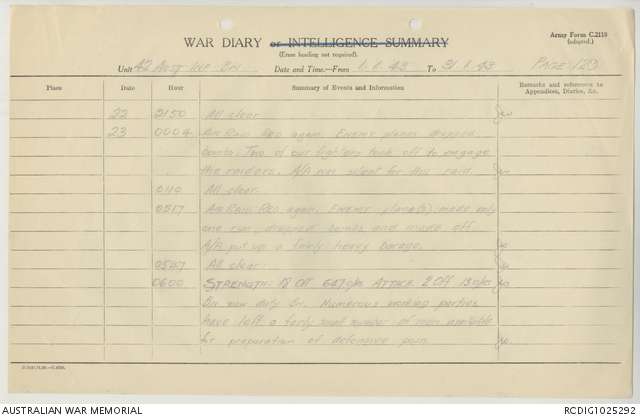 WAR DIARY or INTELLIGENCE SUMMARY
(Erase heading not required).
Army Form C.2118
(adapted.)
Unit 42 Aust Inf Bn. Date and Time—From 1.1.43 To 31.1.43 PAGE 123
Place Date Hour Summary of Events and Information Remarks and reference to Appendices, Diaries, &c.
22 2150 All clear
23 0004 Air Raid Red again. Enemy planes dropped
bombs. Two of our fighters took off to engage
the raiders. A/A was silent for this raid.
0110 All clear.
0517 Air Raid Red again. Enemy plane(s) made only
one run, dropped bombs and made off.
A/A put up a fairly heavy barage.
0547 All clear
0600 STRENGTH: 18 Off 667 o/rs ATTACH. 2 Off o/rs
Bn now duty Bn. Numerous working parties
have left a fairly small number of men available
for preparation of defensive posn.
AUSTRALIAN WAR MEMORIAL
RCDIG1025292